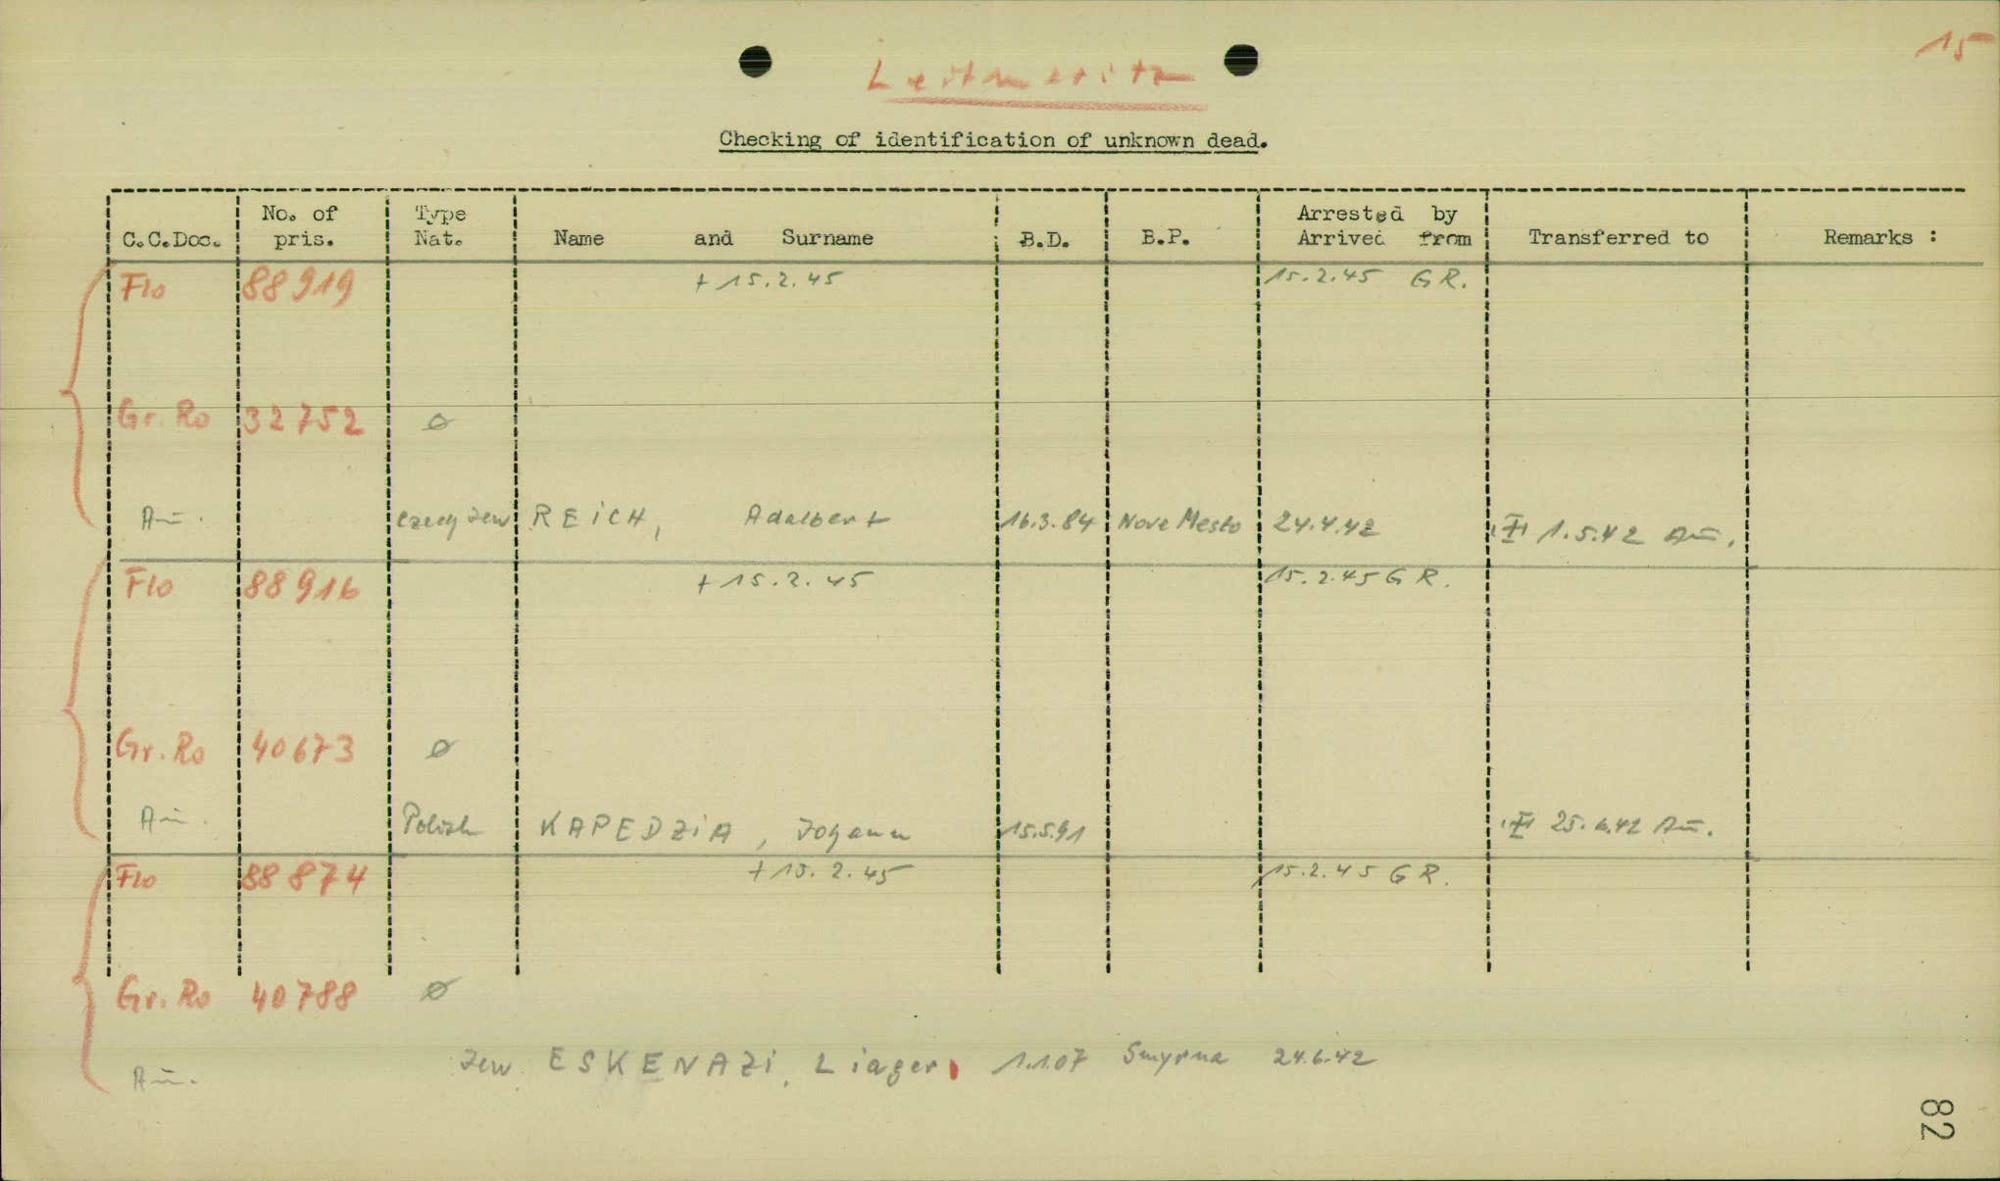 15
Leitmeritz
Checking of identification of unknown dead.
C.C.Doc. No. of pris. Type Nat. Name and Surname B.D. B.P. Arrested by Arrived from Transferred to Remarks :
Flo 88919 + 15.2.45 15.2.45 G R.
Gr. Ro 32752 ø
Au. czech Jew REICH, Adalbert 16.3.84 Nove Mesto 24.4.42 1.5.42 Au.
Flo 88916 + 15.2.45 15.2.45 G R.
Gr. Ro 40673 ø
Au. Polish KAPEDZIA, Johann 15.5.91 25.6.42 Au.
Flo 88874 + 15.2.45 15.2.45 G R.
Gr. Ro 40788 ø
Au. Jew ESKENAZI, Liager 1.1.07 Smyrna 24.6.42
82